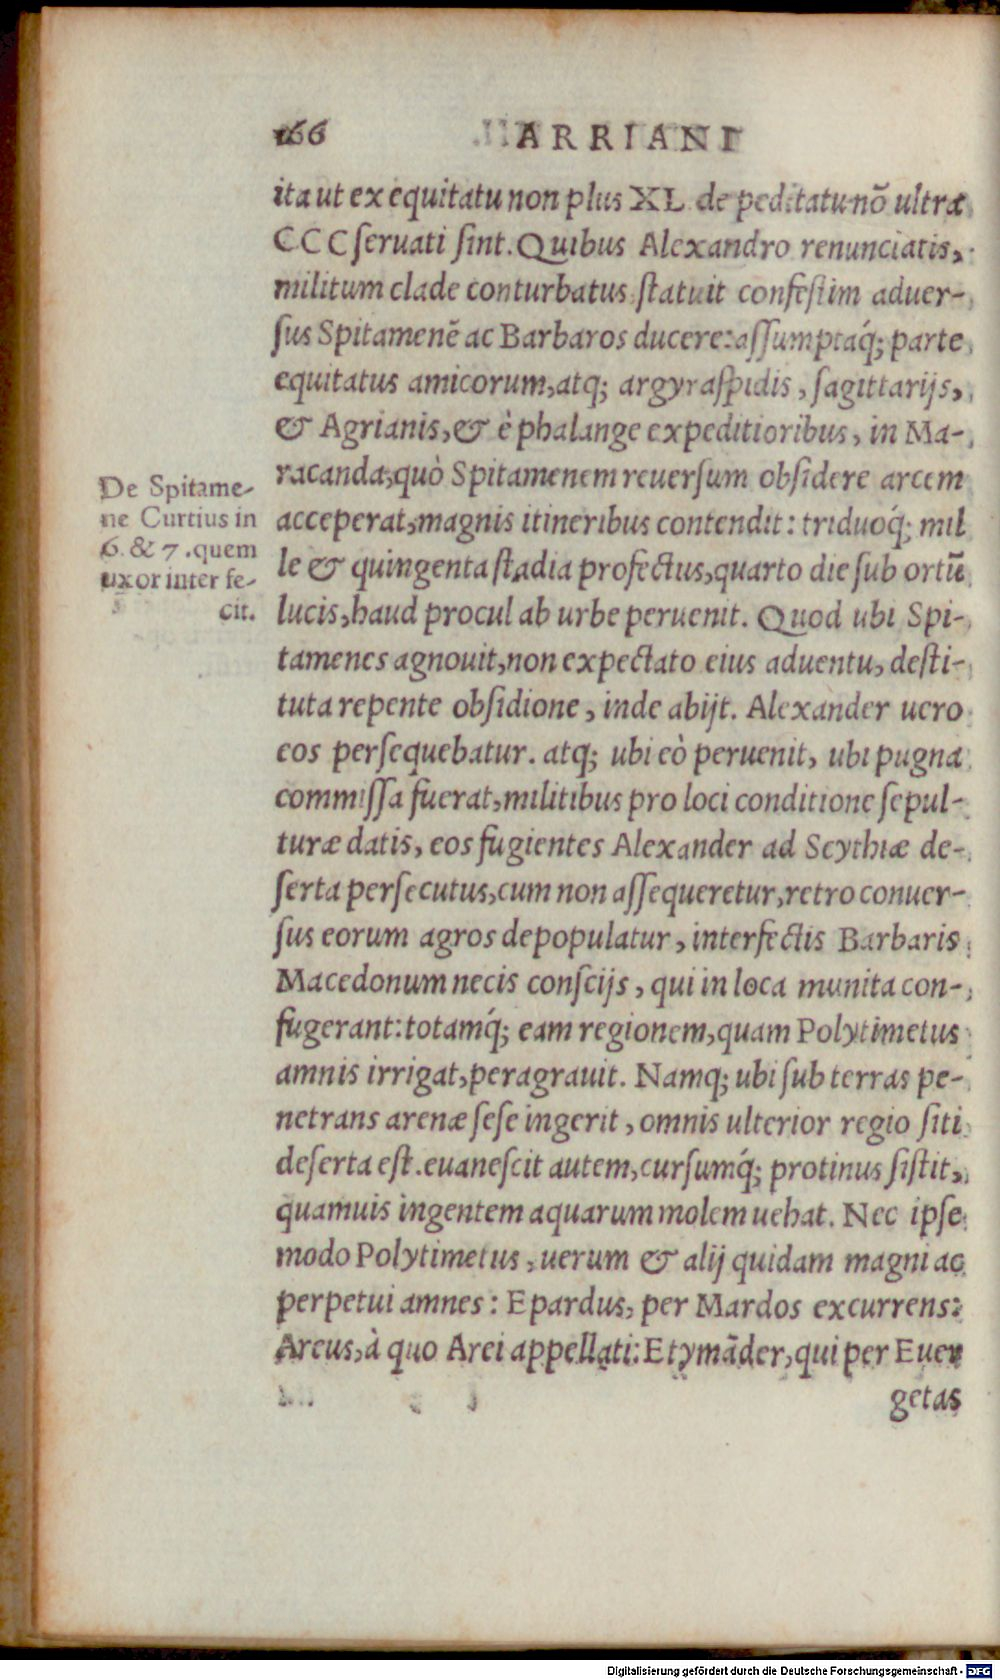 166 ARRIANI
ita ut ex equitatu non plus XL de peditatu nõ ultra
CCC seruati sint. Quibus Alexandro renunciatis,
militum clade conturbatus statuit confestim aduer-
sus Spitamenẽ ac Barbaros ducere: assumptaq́; parte
equitatus amicorum, atq; argyraspidis, sagittarijs,
& Agrianis, & è phalange expeditioribus, in Ma-
racanda, quò Spitamenem reuersum obsidere arcem
acceperat, magnis itineribus contendit: triduoq́; mil
le & quingenta stadia profectus, quarto die sub ortũ
lucis, haud procul ab urbe peruenit. Quod ubi Spi-
tamenes agnouit, non expectato eius aduentu, desti-
tuta repente obsidione, inde abijt. Alexander uero
eos persequebatur. atq; ubi eò peruenit, ubi pugna
commissa fuerat, militibus pro loci conditione sepul-
turæ datis, eos fugientes Alexander ad Scythiæ de-
serta persecutus, cum non assequeretur, retro conuer-
sus eorum agros depopulatur, interfectis Barbaris
Macedonum necis conscijs, qui in loca munita con-
fugerant: totamq́; eam regionem, quam Polytimetus
amnis irrigat, peragrauit. Namq; ubi sub terras pe-
netrans arenæ sese ingerit, omnis ulterior regio siti
deserta est. euanescit autem, cursumq́; protinus sistit,
quamuis ingentem aquarum molem uehat. Nec ipse
modo Polytimetus, uerum & alij quidam magni ac
perpetui amnes: Epardus, per Mardos excurrens:
Areus, à quo Arei appellati: Etymãder, qui per Euer
getas
De Spitame-
ne Curtius in
6. & 7. quem
uxor inter fe-
cit.
Digitalisierung gefördert durch die Deutsche Forschungsgemeinschaft - DFG